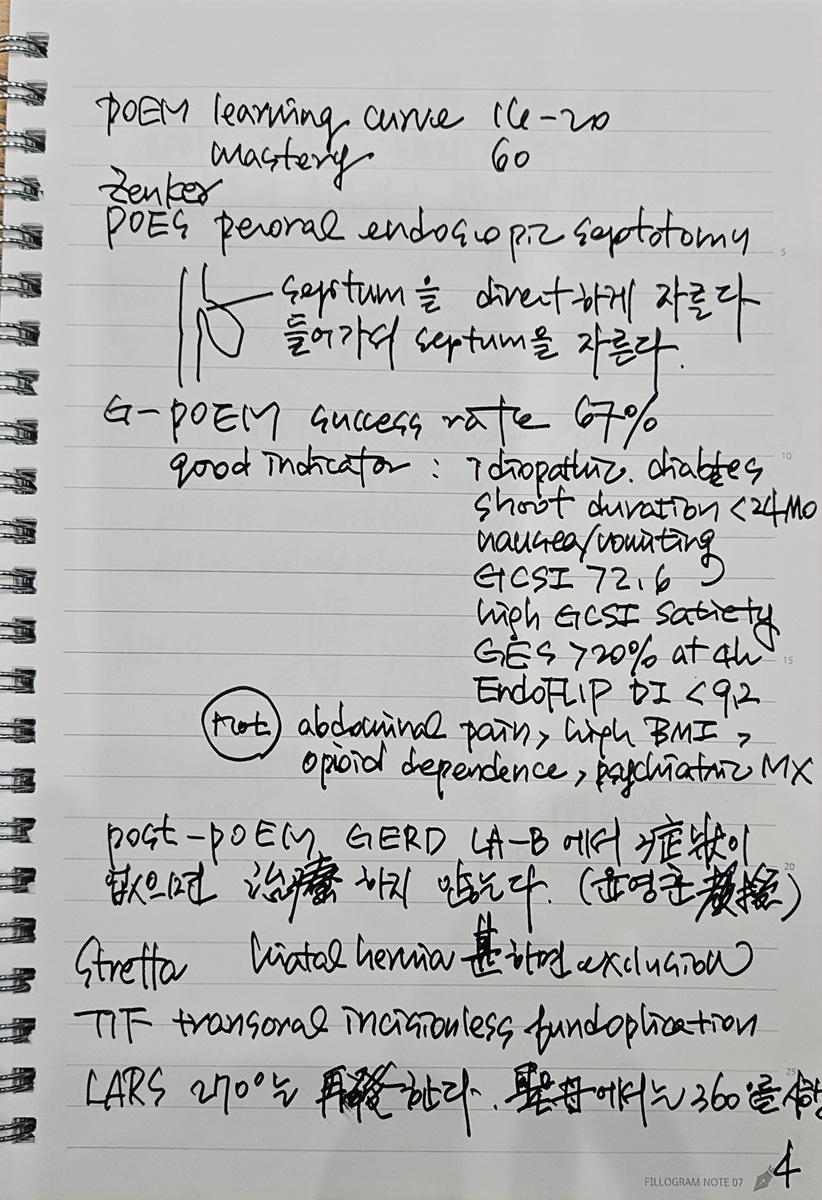 POEM learning curve 16-20
mastery 60
Zenker
POES peroral endoscopic septotomy
septum을 direct하게 자른다
들어가서 septum을 자른다.
G-POEM success rate 67%
good indicator : idiopathic. diabetes
short duration <24Mo
nausea/vomiting
GCSI >2.6
high GCSI satiety
GES >20% at 4h
EndoFLIP DI <9.2
not abdominal pain, high BMI,
opioid dependence, psychiatric MX
post-POEM GERD LA-B에서 症狀이
없으면 治療하지 않는다. (윤영훈 敎授)
Stretta hiatal hernia 甚하면 exclusion
TIF transoral incisionless fundoplication
LARS 270°는 再發한다. 聖母에서는 360°를
4
FILLOGRAM NOTE 07
5
10
15
20
25